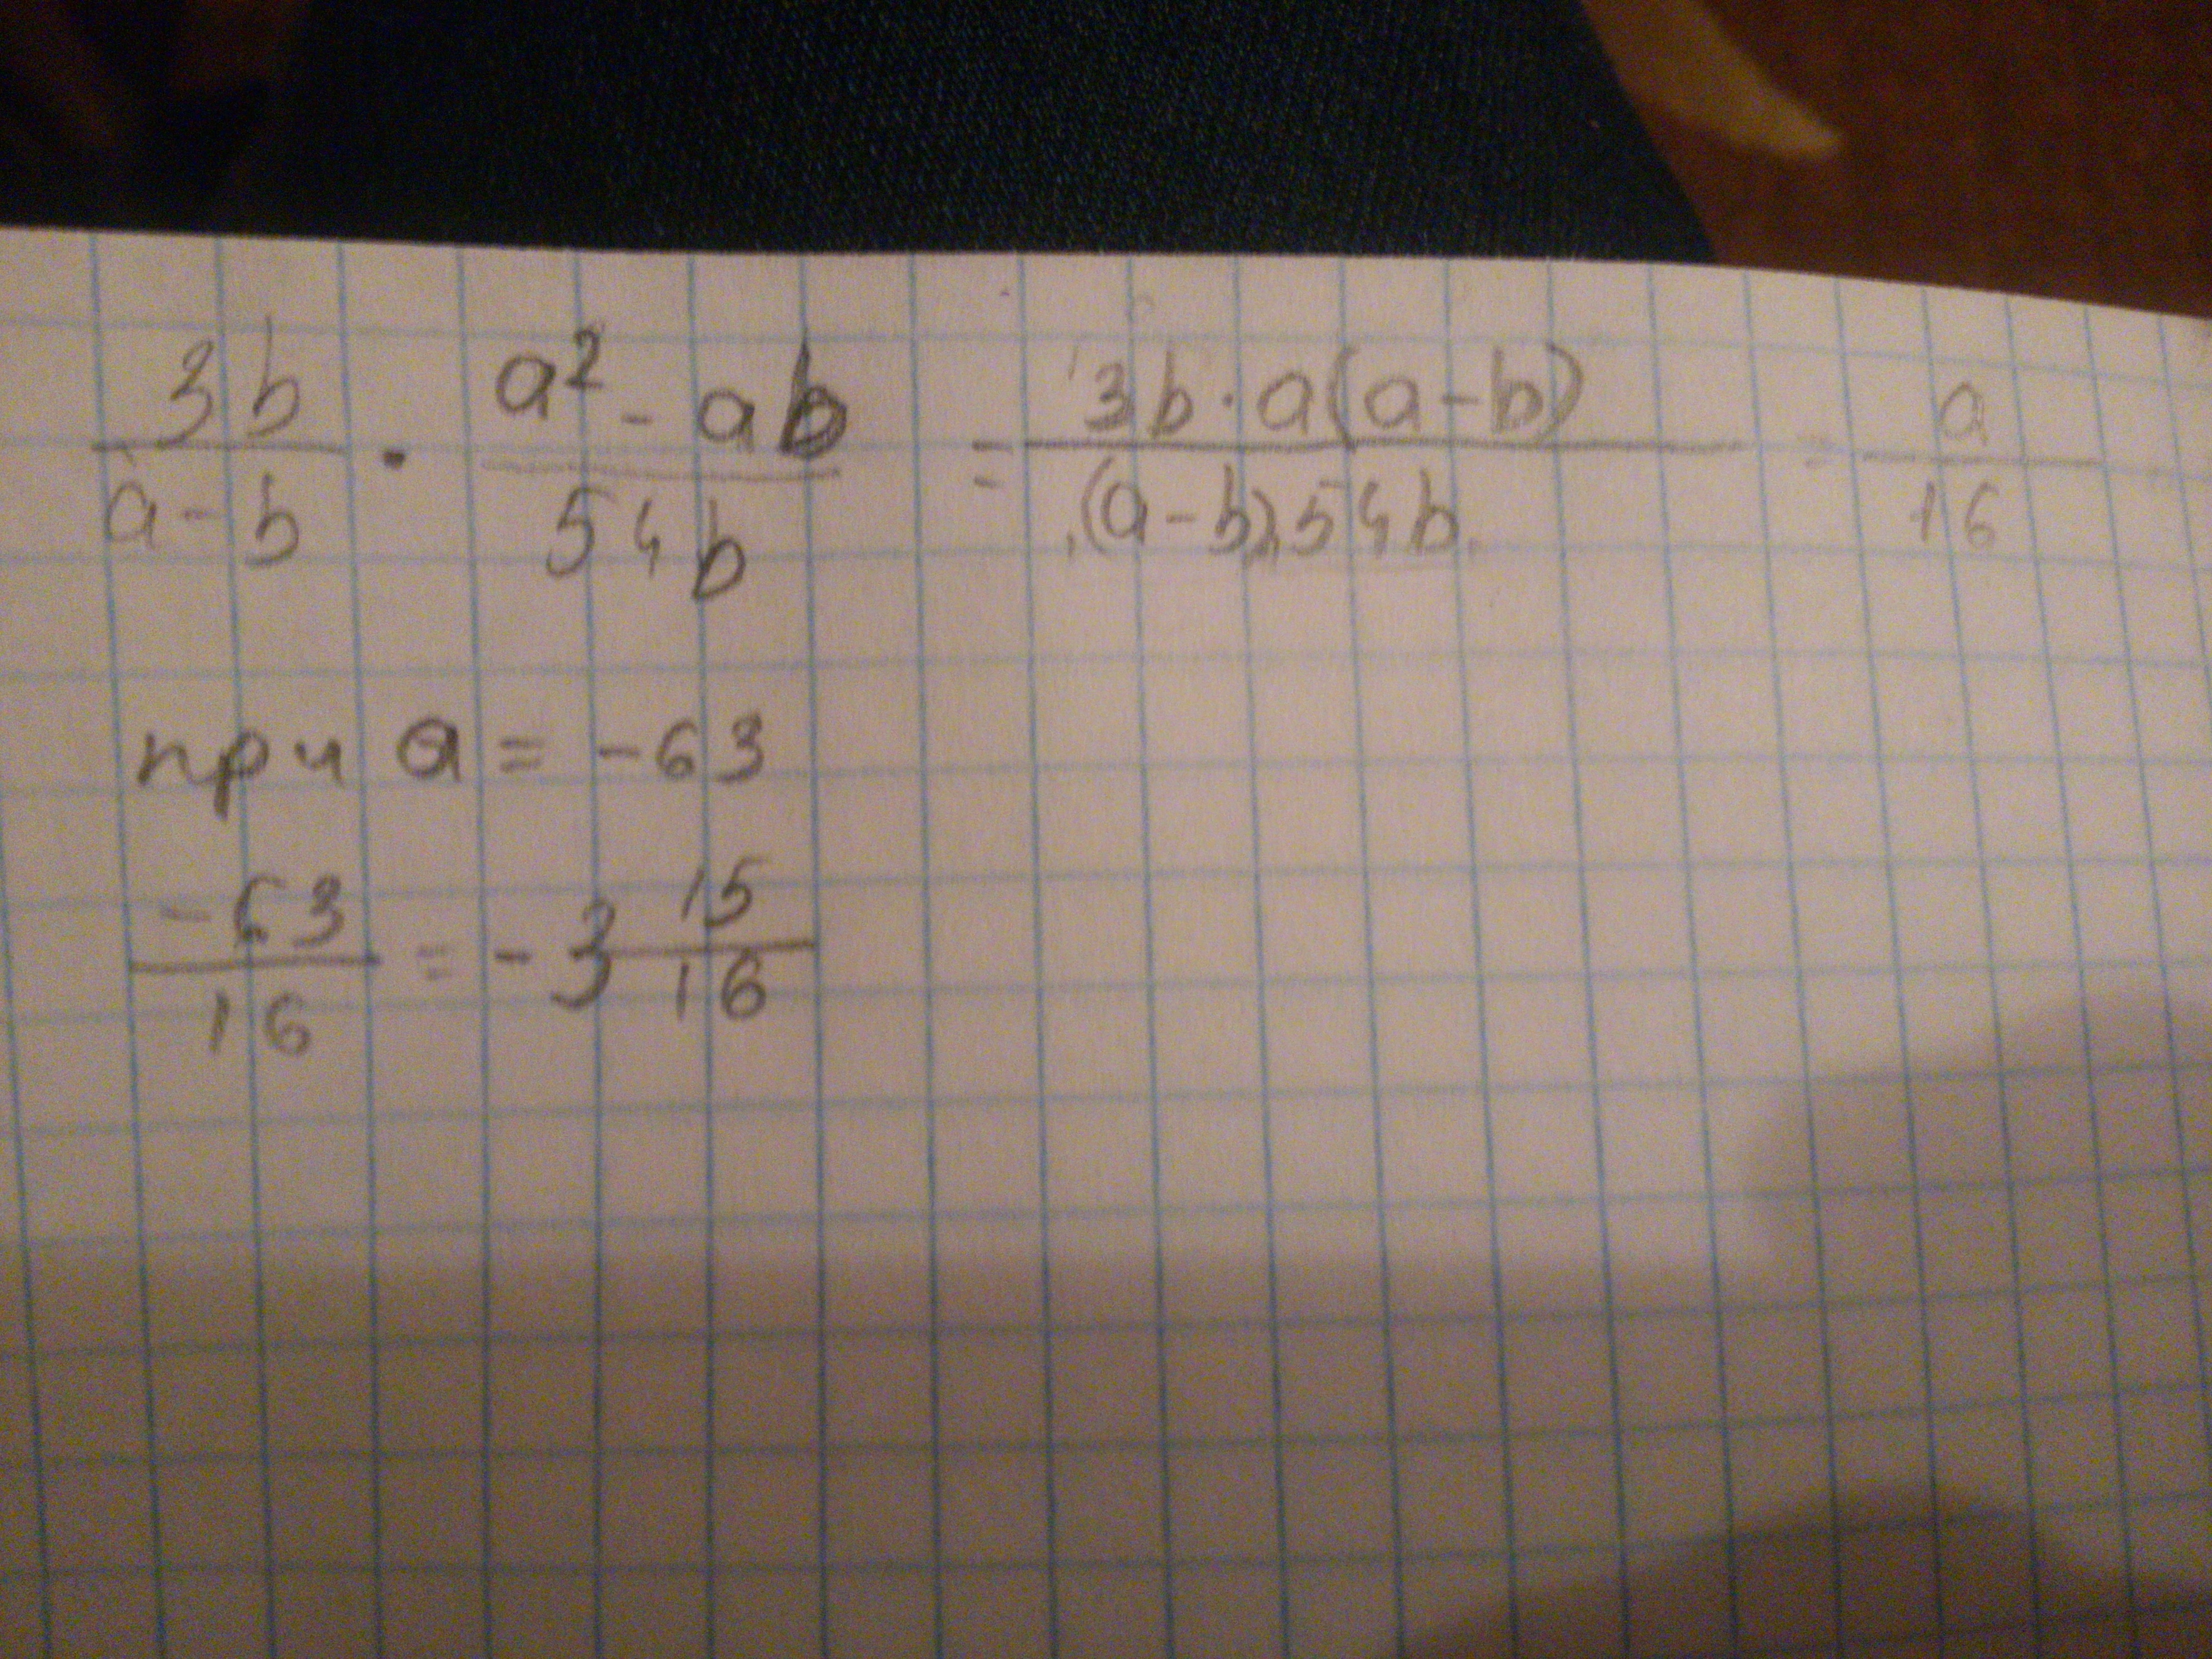 3b/a-b · a²-ab/54b = 3b·a(a-b)/(a-b)54b = a/16
при a = -63
-63/16 = -3 15/16